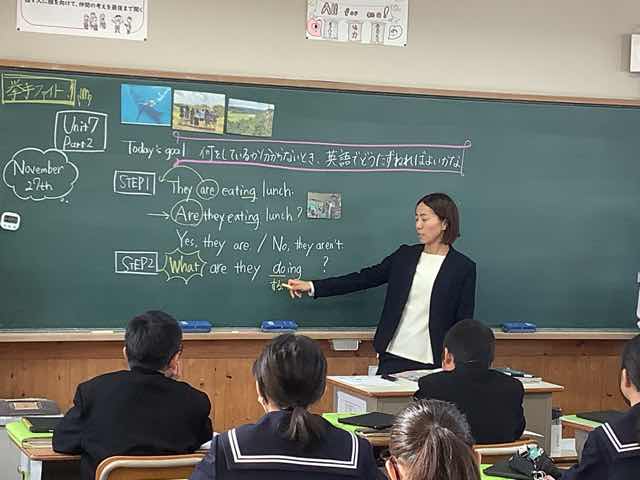 仲間の考えを最後まで聞く
All for one!
挙手ファイト!
Unit 7
Part 2
November
27th
Today's goal 何をしているか分からないとき、英語でどうたずねればよいかな
STEP1 They are eating lunch.
→ Are they eating lunch?
Yes, they are. / No, they aren't.
STEP2 What are they doing ?
する